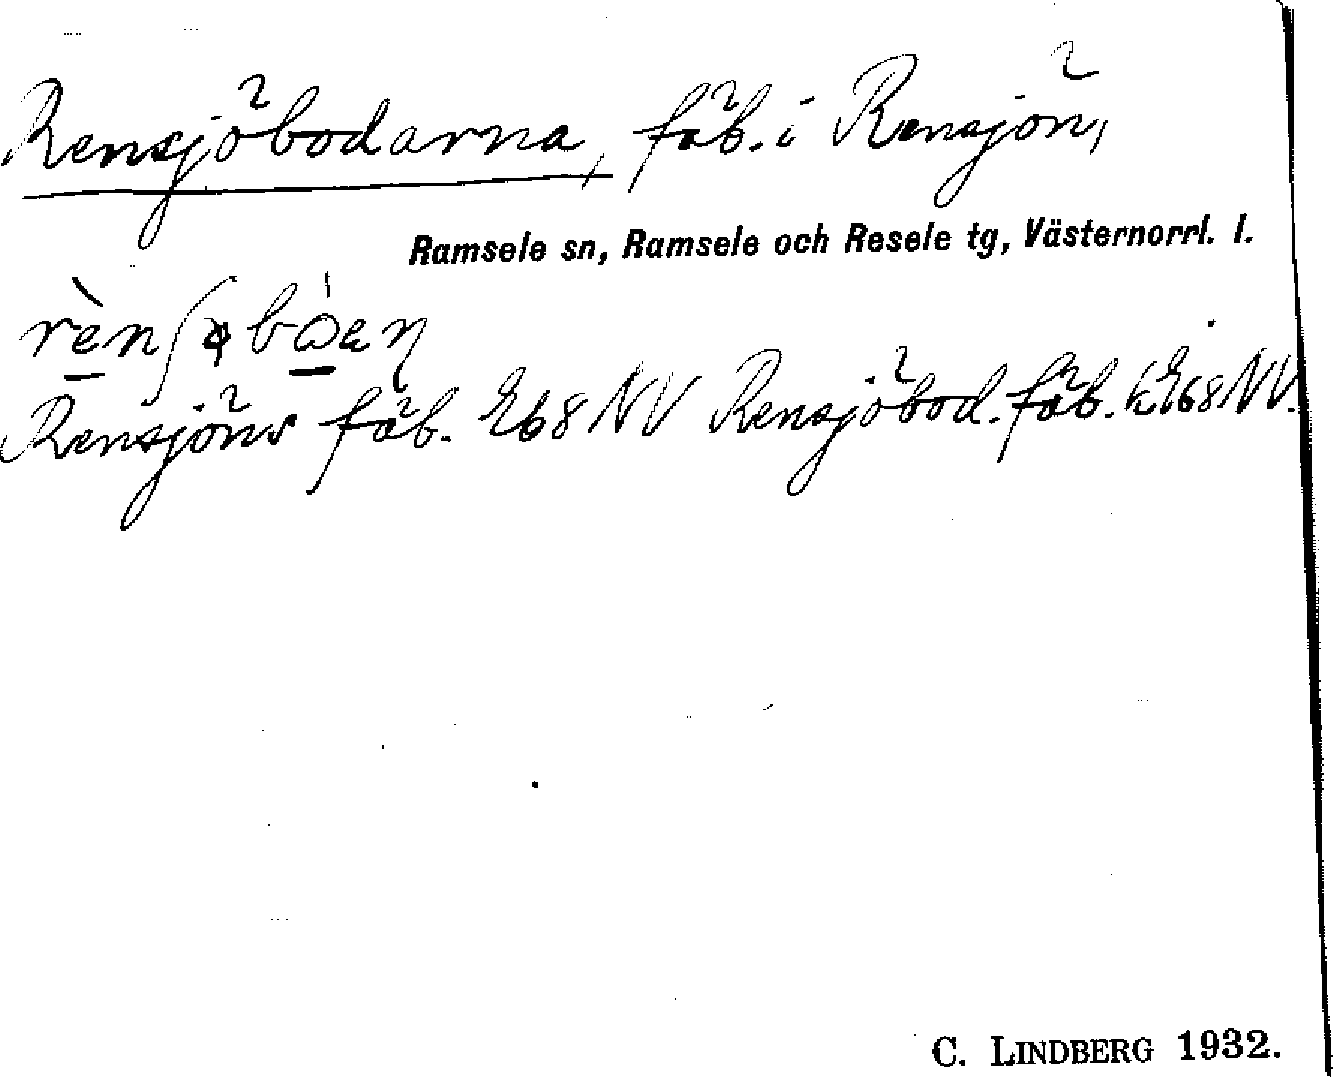 Rensjöbodarna, fäb. i Rensjön,
Ramsele sn, Ramsele och Resele tg, Västernorrl. l.
Rensjöns fäb. E68 NV Rensjöbod. fäb. k E68 NV.
C. LINDBERG 1932.